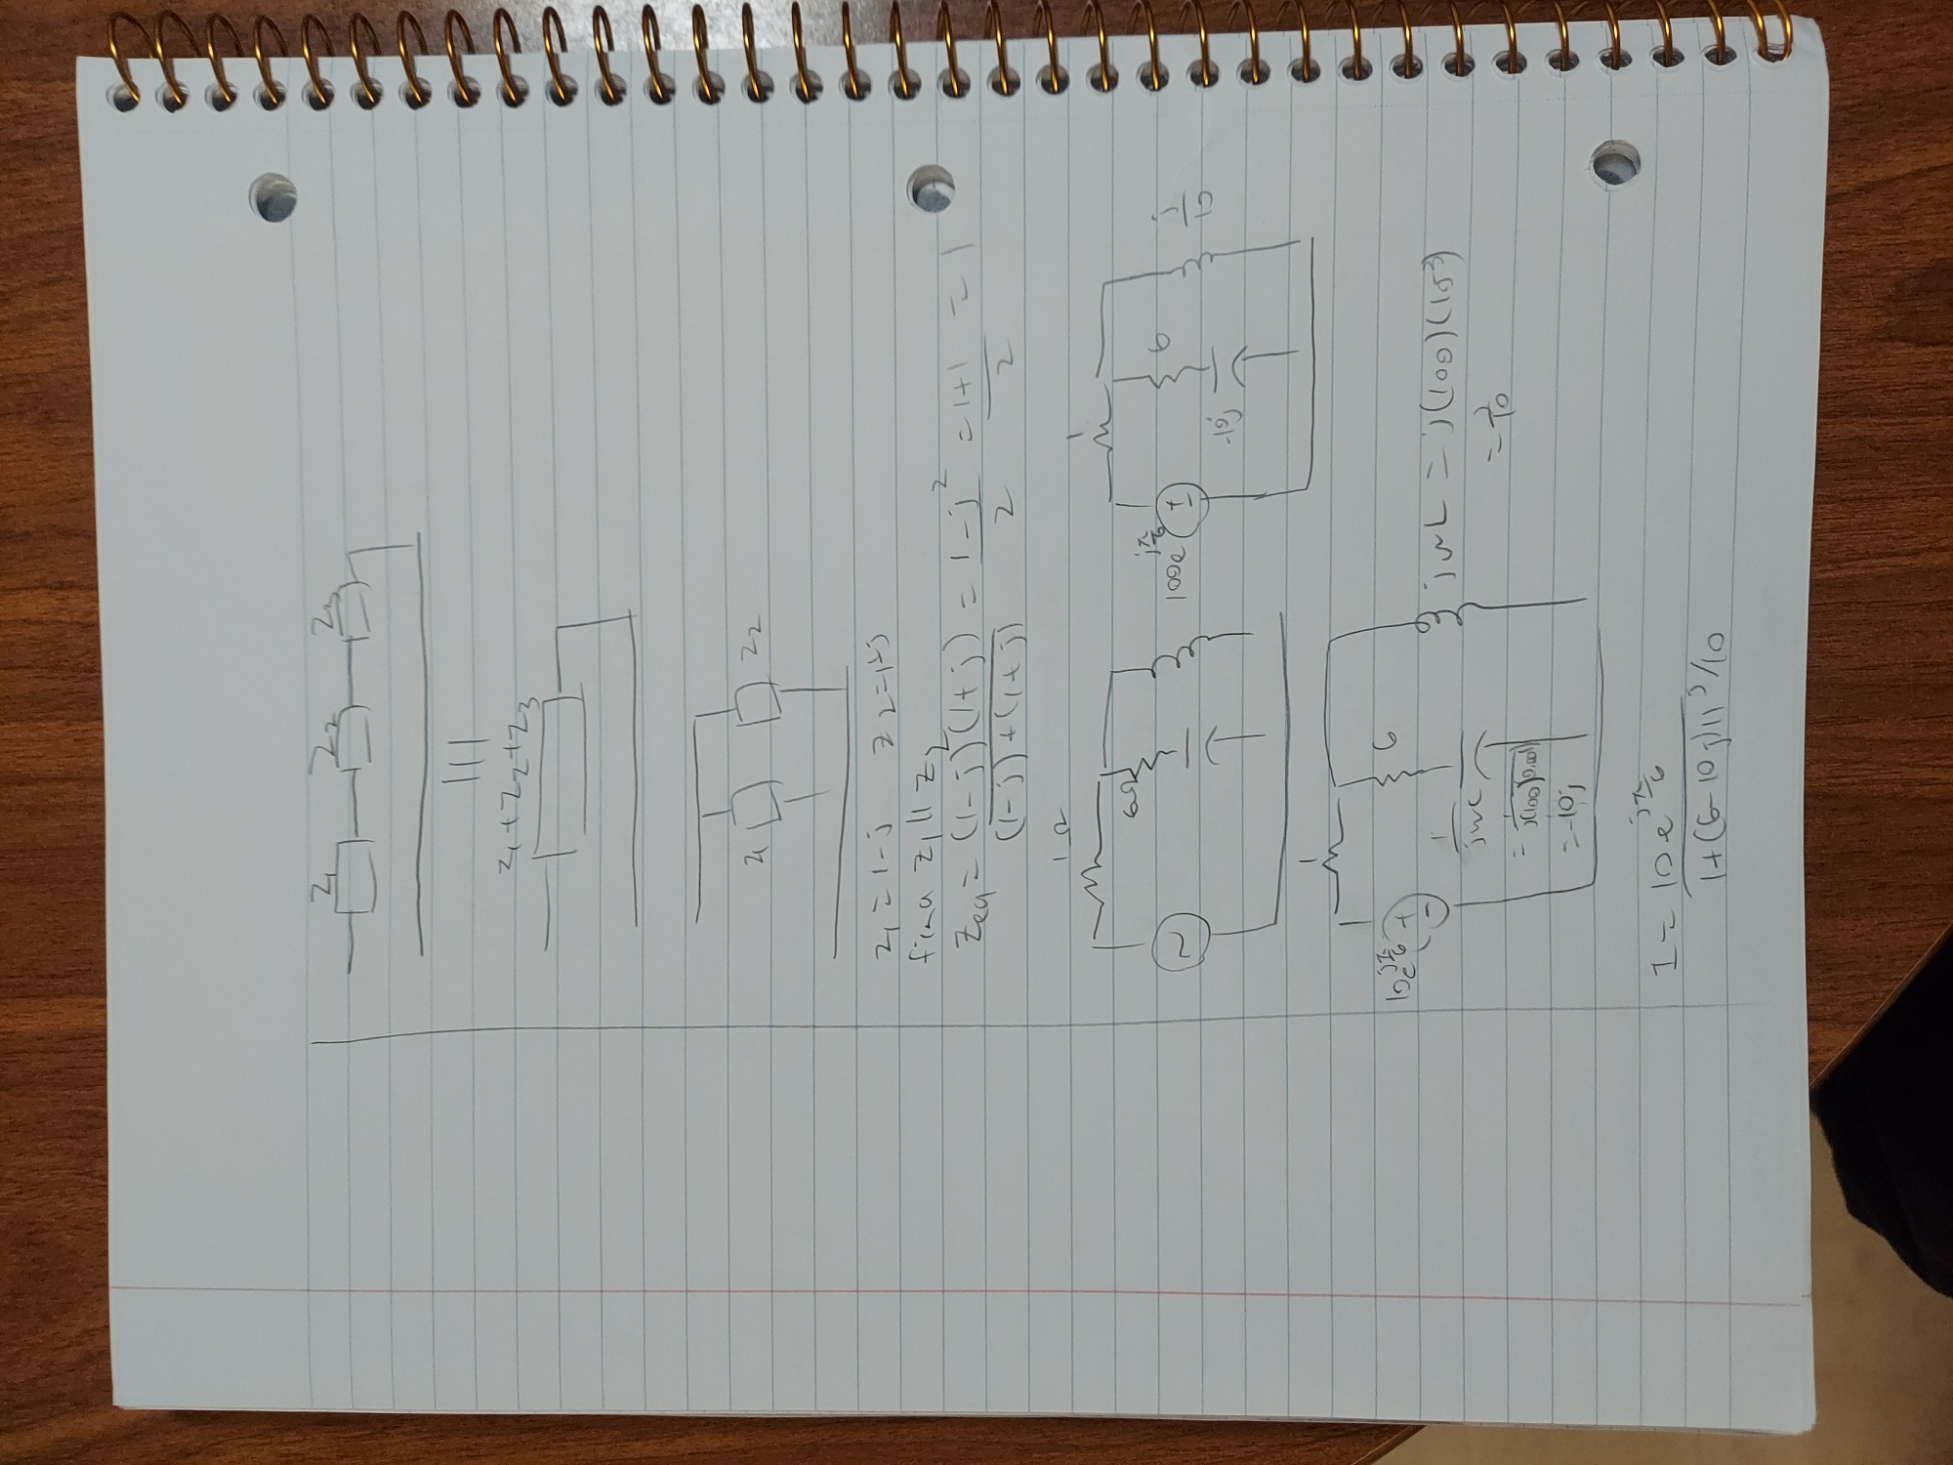 Z₁ Z₂ Z₃
|||
Z₁+Z₂+Z₃
Z₁ Z₂
Z₁=1-j Z₂=1+j
find Z₁||Z₂
Zeq = (1-j)(1+j)/((1-j)+(1+j)) = (1-j²)/2 = (1+1)/2 = 1
1Ω
6Ω
~
1
100e^(jπ/6) + - 6 j/10
-10j
1
10e^(jπ/6) + - 6
1/(jωC) jωL = j(100)(10⁻³)
= 1/(j(100)(0.001)) = j/10
= -10j
I = 10e^(jπ/6)/(1+(6-10j)||j/10)